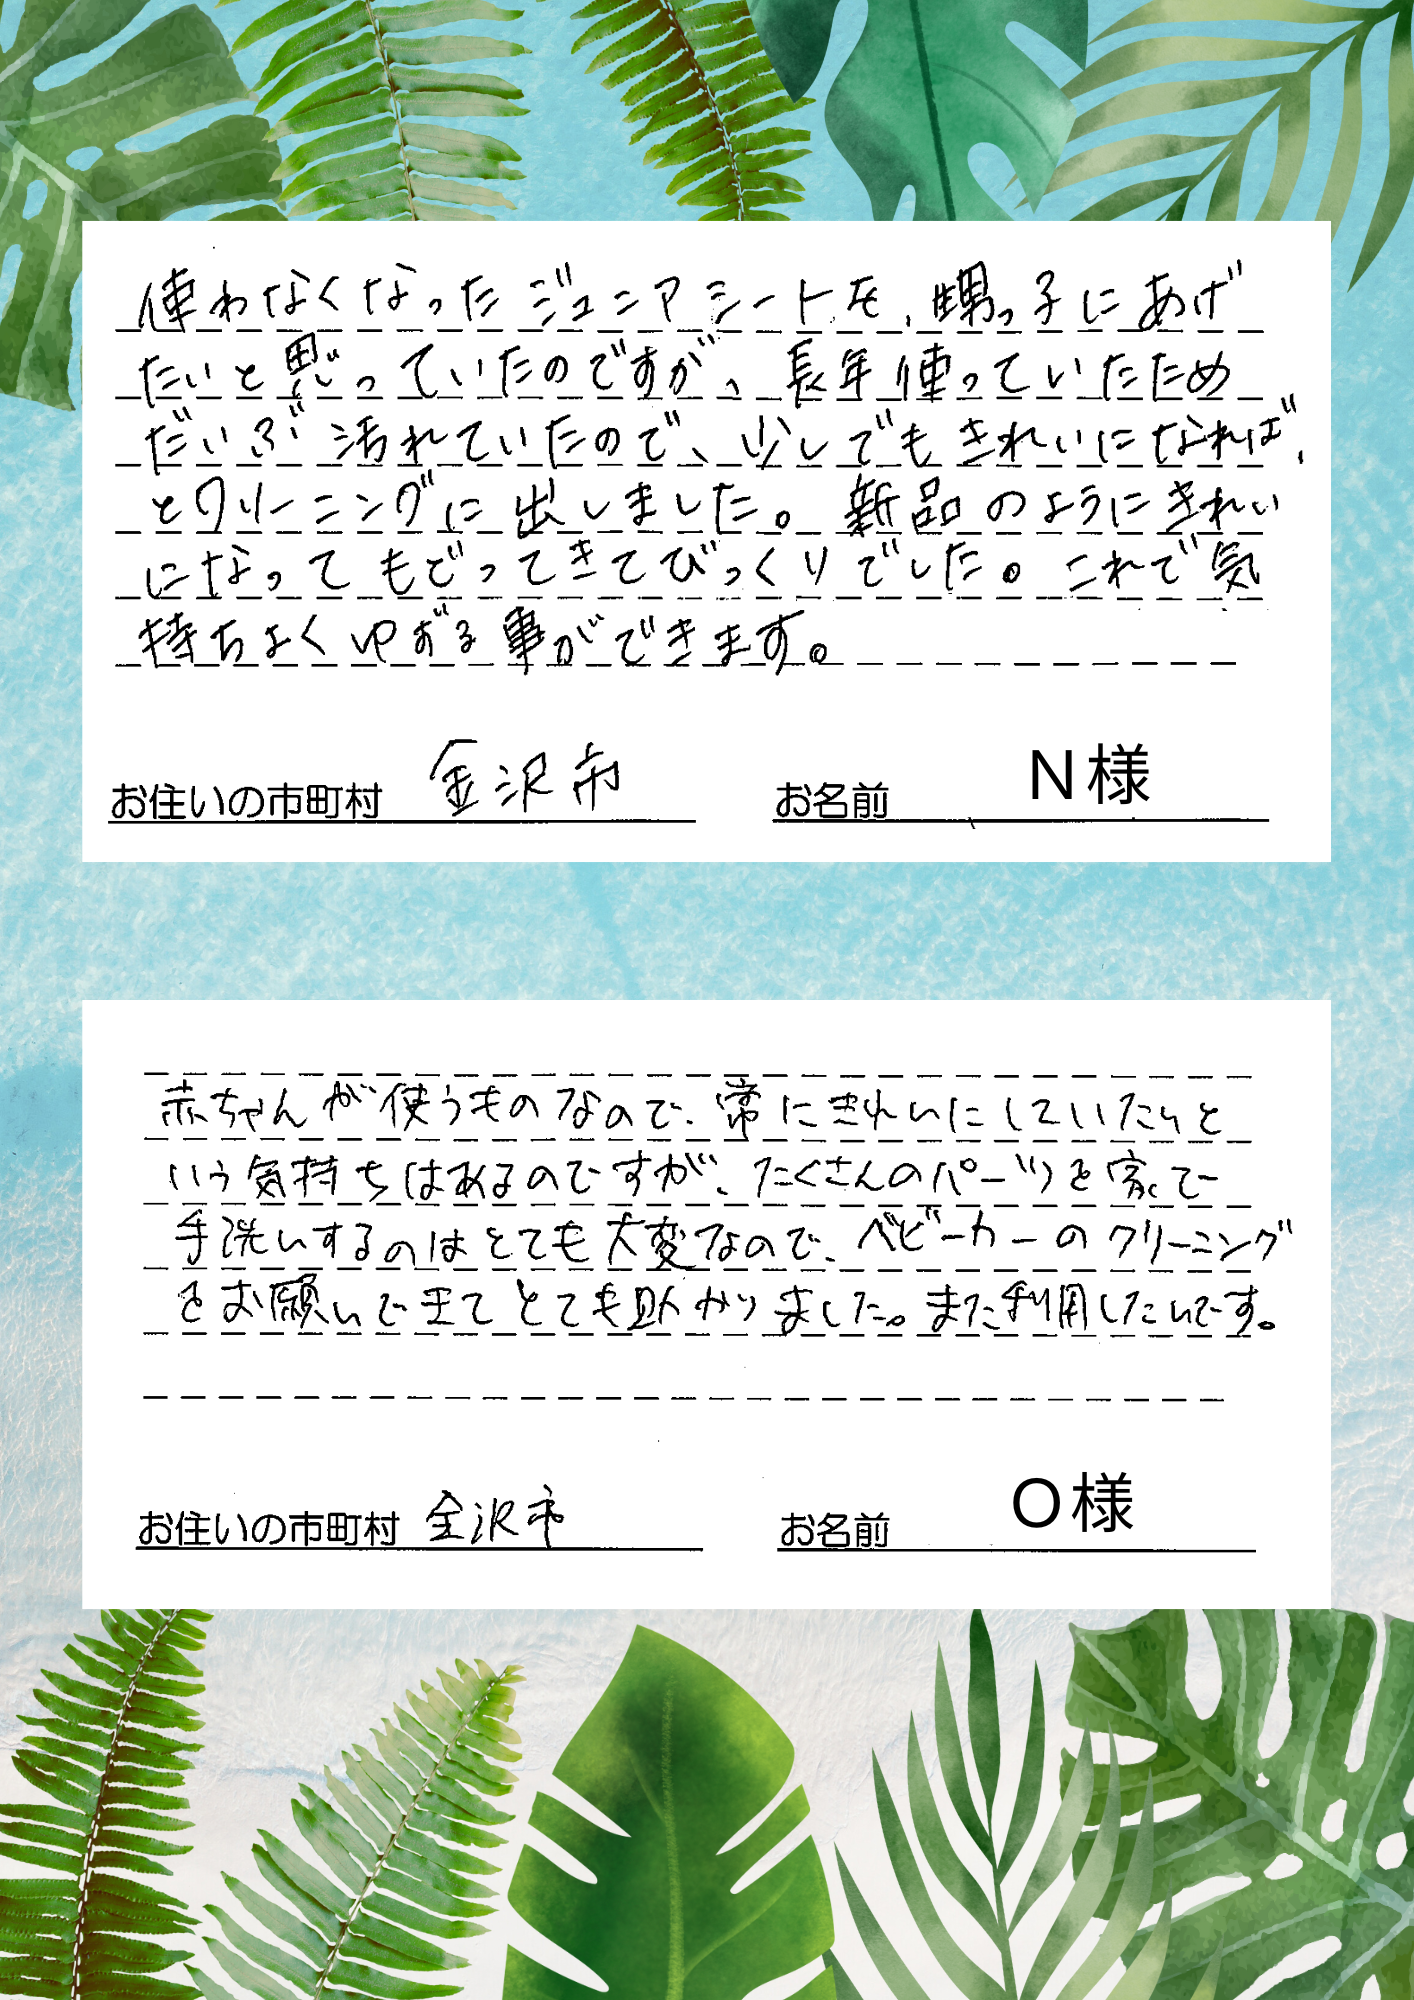 使わなくなったジュニアシートを、甥っ子にあげ
たいと思っていたのですが、長年使っていたため
だいぶ汚れていたので、少しでもきれいになれば、
とクリーニングに出しました。新品のようにきれい
になってもどってきてびっくりでした。これで気
持ちよくゆずる事ができます。
お住いの市町村 金沢市 お名前 N様
赤ちゃんが使うものなので、常にきれいにしていたいと
いう気持ちはあるのですが、たくさんのパーツを家で
手洗いするのはとても大変なので、ベビーカーのクリーニング
をお願いできてとても助かりました。また利用したいです。
お住いの市町村 金沢市 お名前 O様